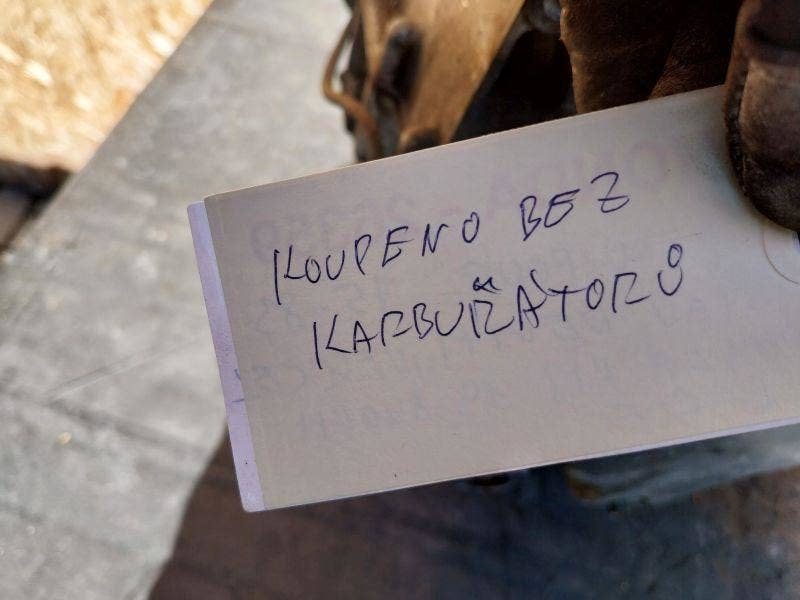 KOUPENO BEZ
KARBUŘÁTORŮ